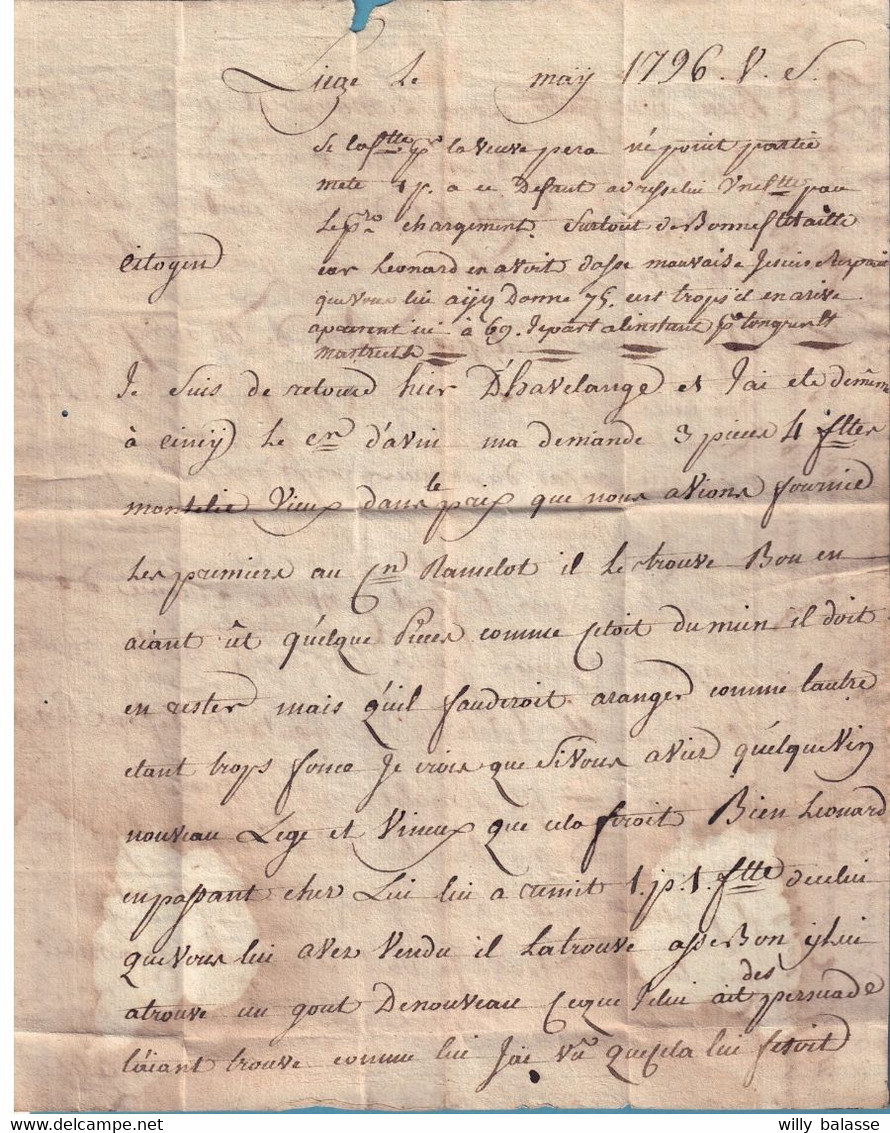 Liege Le may 1796. V. S.
Si la fftte pr la veuve pera né point partie
mete 1 p. a ce Defaut adresselui Une fftte par
Le pro chargement. Surtout de Bonne fftaille
Citoyen
car Leonard en avoit dasse mauvaise Je suis
que vous lui aiyy Donne 75. cest trops il en arive
aparent ici à 69. Je part alinstant pr tongres et
mastrecht
Je suis de retour hier D'havelange et Jai ete
à Ciney Le Cn d'avin ma demande 3 pieces 4 fttes
montelie Vieux dans le prix que nous avions fournie
Les premiers au Cn Ramelot il le trouve Bon en
aiant ût quelque Pieces comme Cetoit du mien il doit
en rester mais quil fauderoit aranger comme lautre
etant trops fonce Je crois que Si vous avier quelque vin
nouveau Lege et Vineux que cela feroit Bien Leonard
en passant cher Lui lui a remit 1. p. 1. fftte de celui
que vous lui aver Vendu il La trouve asse Bon y Lui
a trouve un gout De nouveau Ceque Je lui ait des persuade
l'aiant trouve comme lui Jai vû que Cela lui